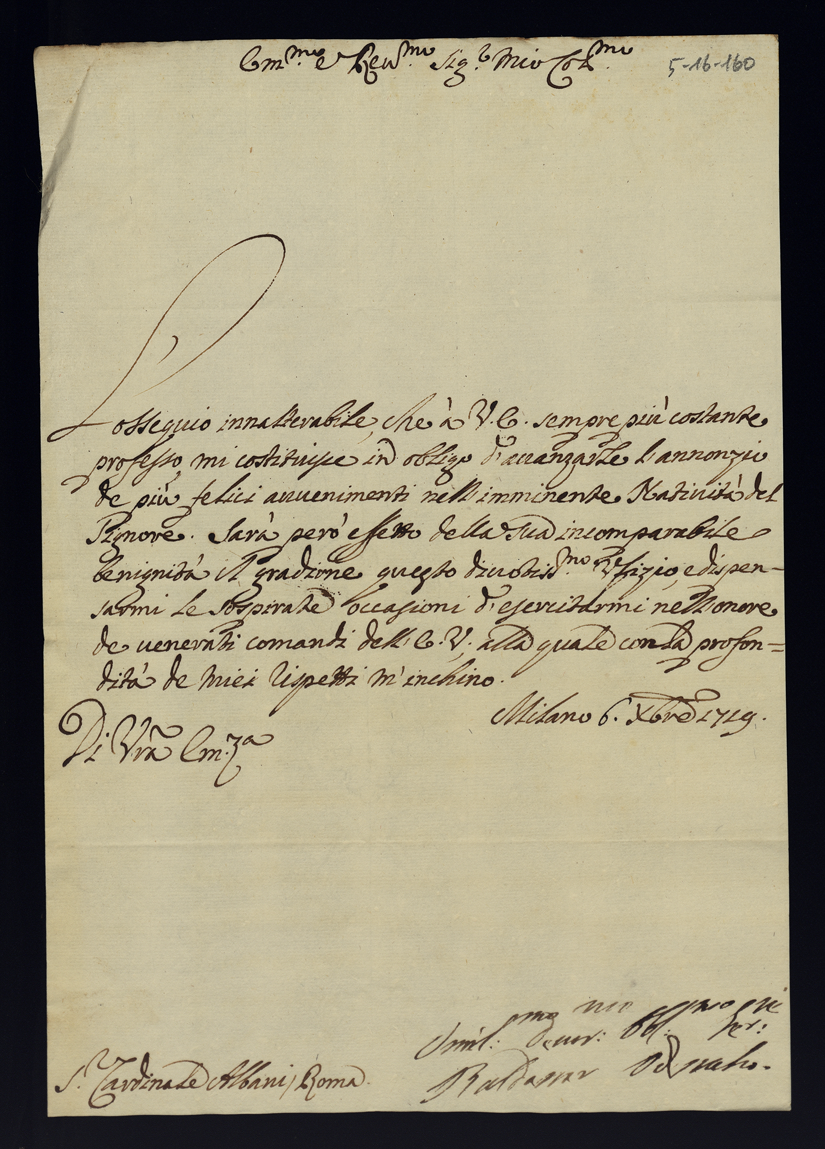 Em.mo e Reu.mo Sig.r Mio Col.mo
5-16-160
L'ossequio innalterabile, che à V. E. sempre più costante
professo, mi costituisce in obligo d'auanzarle l'annonzio
de più felici auuenimenti nell'imminente Natiuità del
Signore. Sarà però effetto della sua incomparabile
benignità il gradirne questo diuotiss.mo Vfizio, e dispen-
sarmi le sospirate occasioni d'esercitarmi nell'onore
de uenerati comandi dell'E. V., alla quale con la profon=
dità de miei rispetti m'inchino.
Milano 6. Xbre 1719.
Di Vra Em.za
Vmil.mo Deuot.mo Obl.mo Ser.re
Baldassar
S.r Cardinale Albani, Roma.